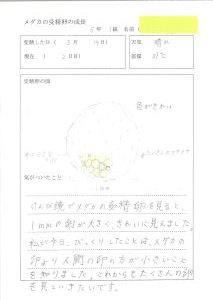 メダカの受精卵の成長
5年 1組 名前(
受精した日( 5月 19日)
天気 晴れ
現在( 2日目)
受精卵の図
色がきれい
1mm
気がついたこと
けんび鏡でメダカの受精卵を見ると、
1mmの卵が大きく、きれいに見えました。
私が今日、びっくりしたことは、メダカの
卵より人間の卵の方が小さいこと
を知りました。これからもたくさんの卵
を見ていきたいです。